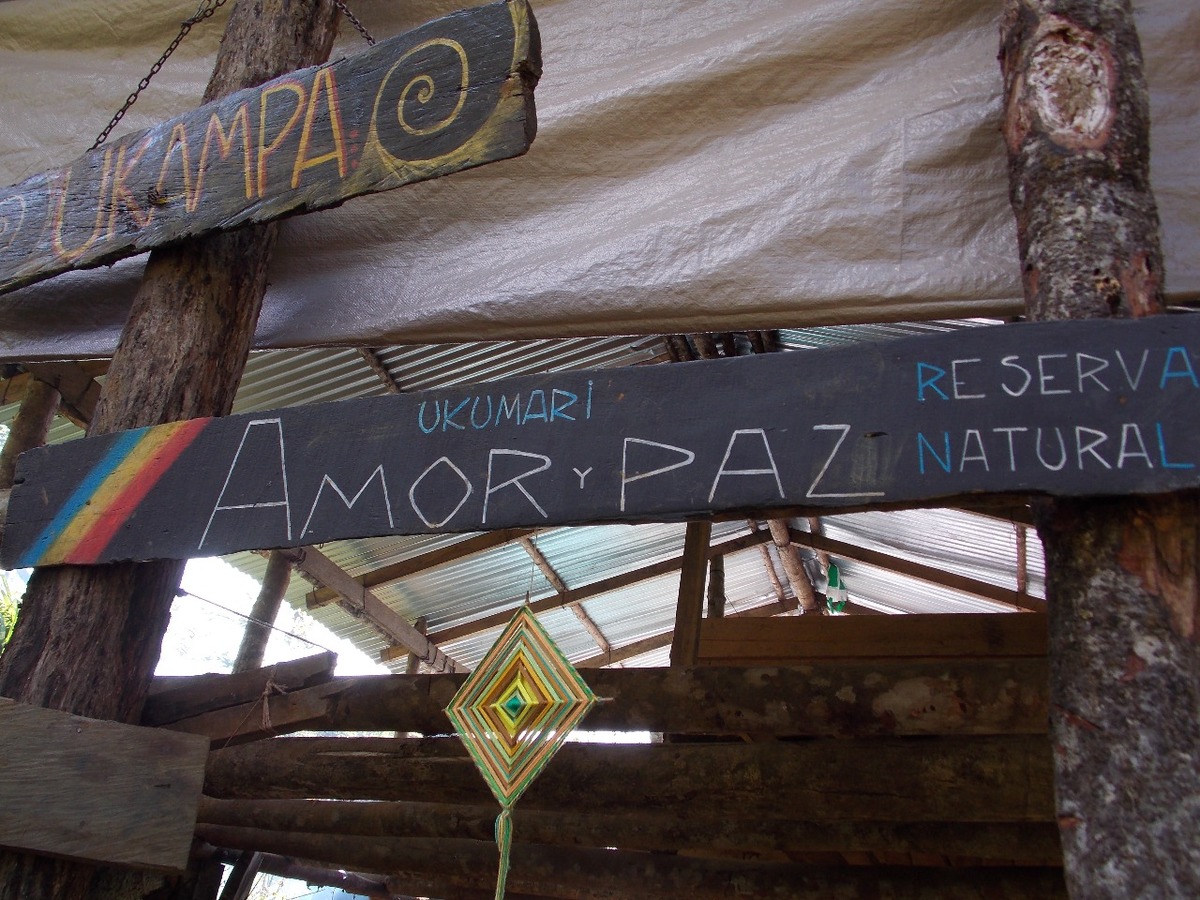 UKAMPA
UKUMARi
AMOR Y PAZ
RESERVA
NATURAL